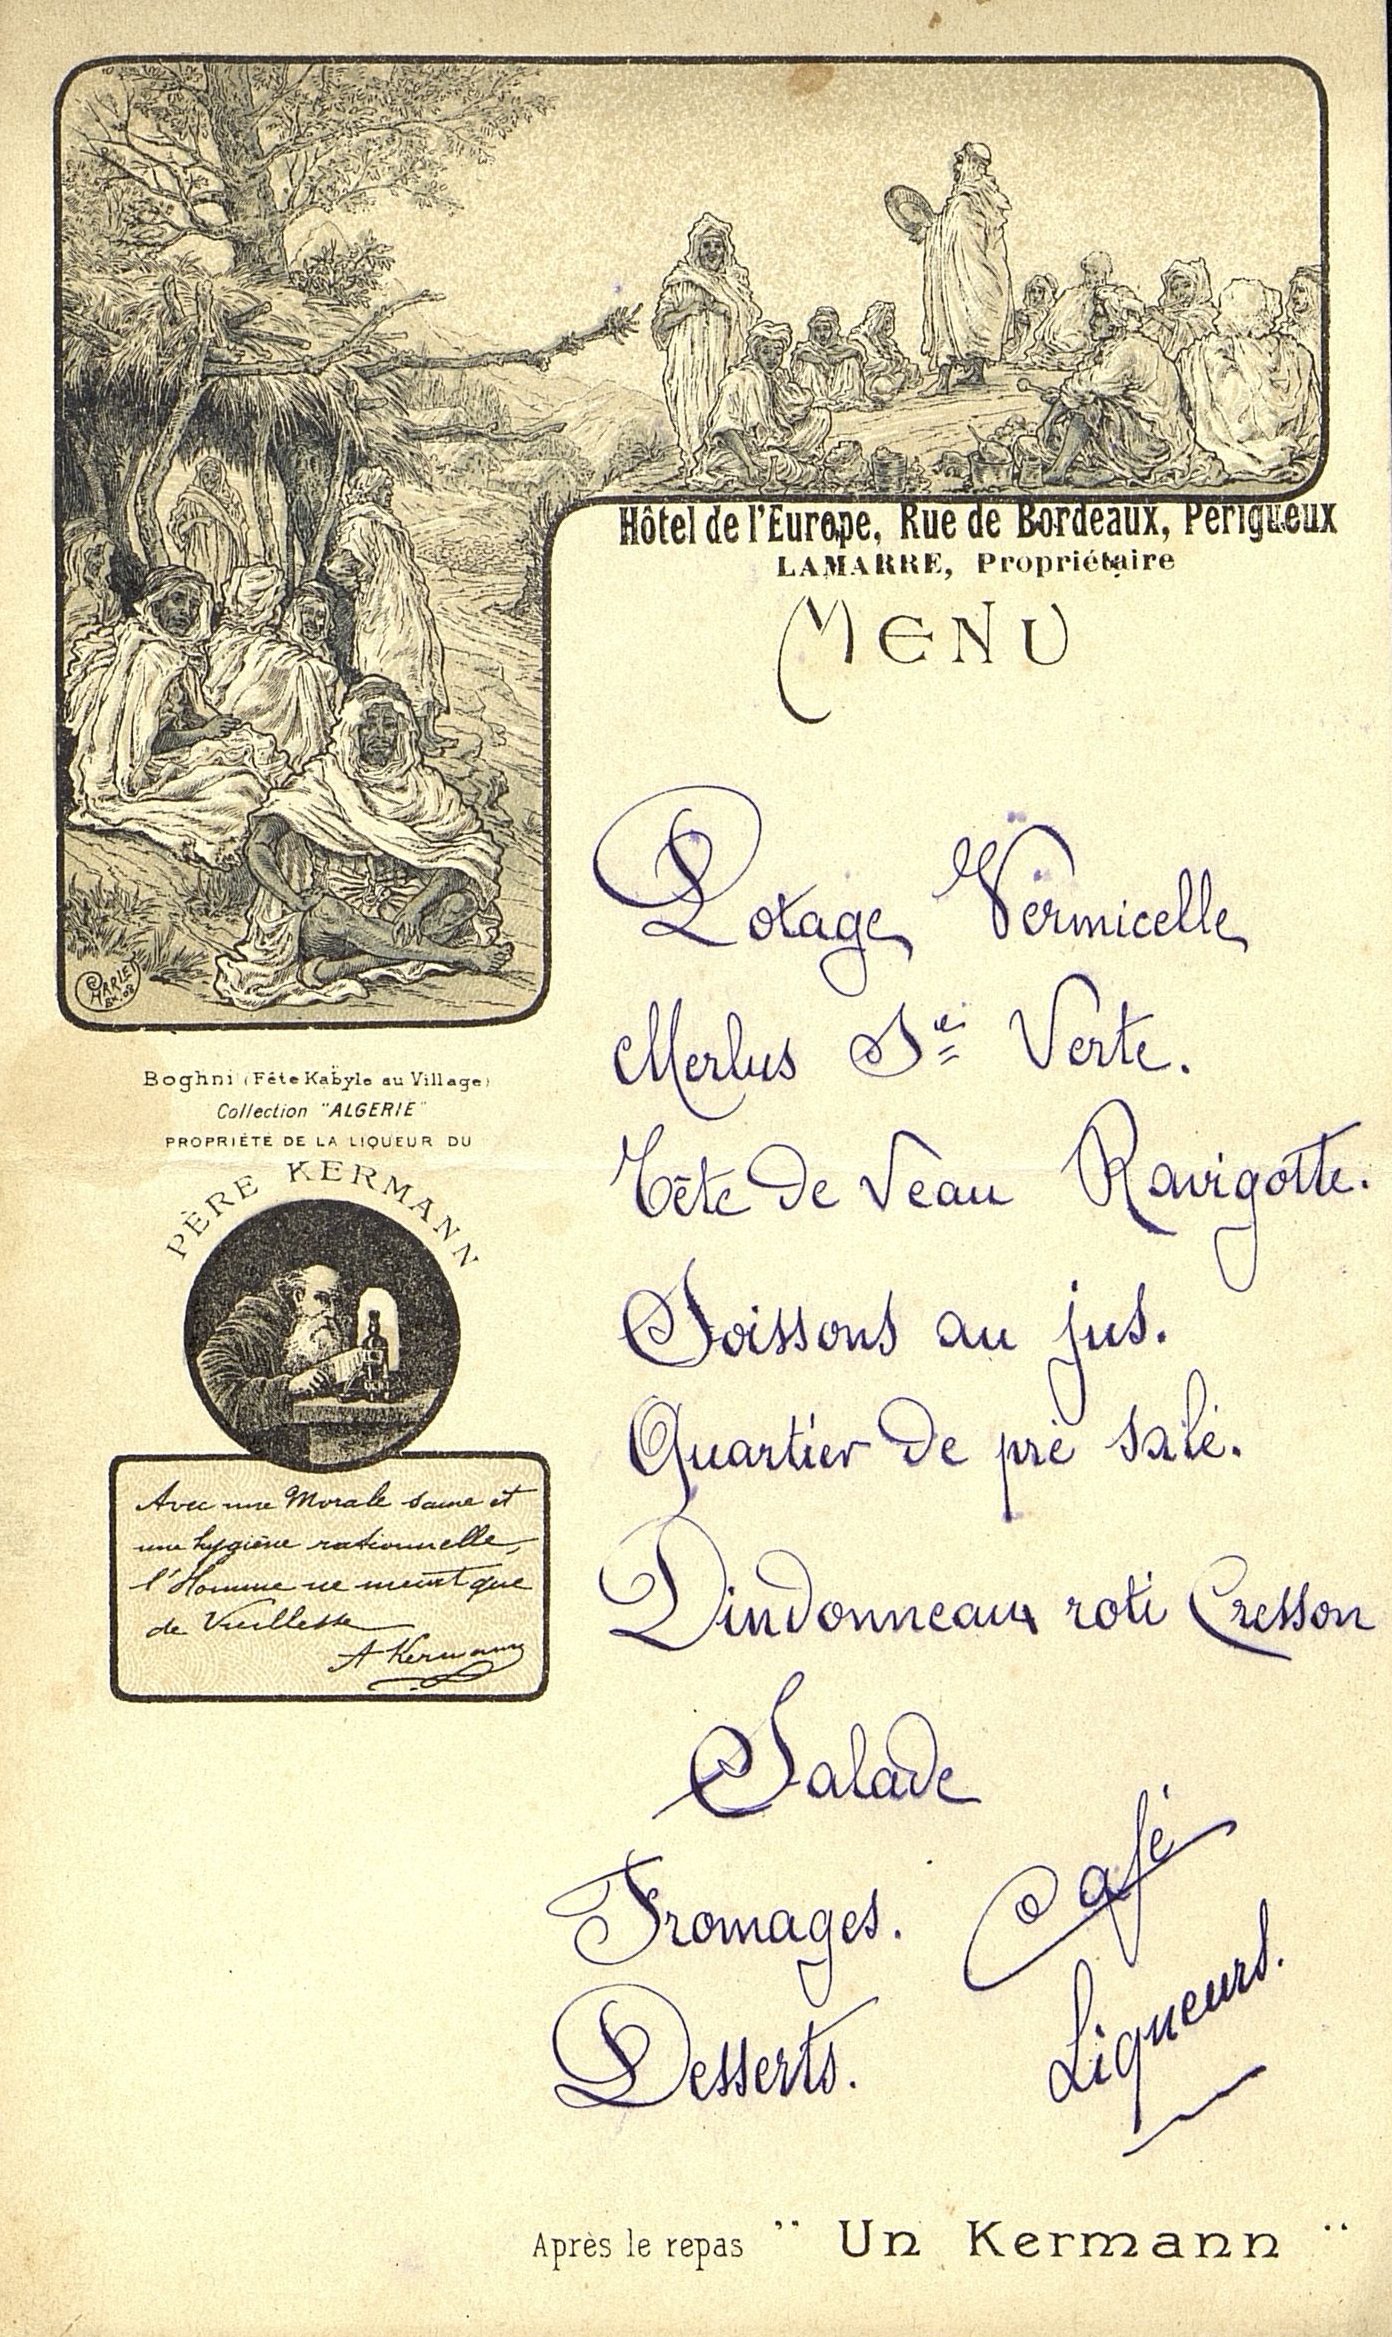 Hôtel de l'Europe, Rue de Bordeaux, Périgueux
LAMARRE, Propriétaire
MENU
Potage Vermicelle
Merlus Sce Verte.
Tête de Veau Ravigotte.
Soissons au jus.
Quartier de pré salé.
Dindonneaux roti Cresson
Salade
Fromages.
Café
Desserts.
Liqueurs.
Boghni (Fête Kabyle au Village)
Collection "ALGERIE"
PROPRIÉTÉ DE LA LIQUEUR DU
PÈRE KERMANN
Avec une Morale saine et
une hygiène rationnelle,
l'Homme ne meurt que
de Vieillesse
A Kermann
Après le repas "Un Kermann"